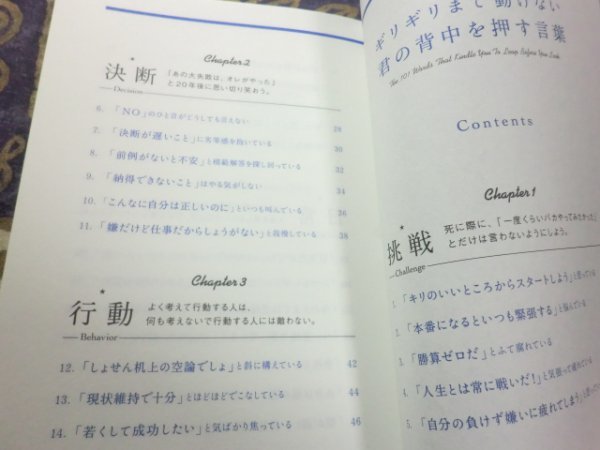 ギリギリまで動けない
君の背中を押す言葉
The 101 Words That Kindle You To Leap Before You Look
Contents
Chapter1
挑戦
Challenge
死に際に、「一度くらいバカやってみたかった」
とだけは言わないようにしよう。
1. 「キリのいいところからスタートしよう」と思っている
2. 「本番になるといつも緊張する」と悩んでいる
3. 「勝算ゼロだ」とふて腐れている
4. 「人生とは常に戦いだ!」と気張って疲れている
5. 「自分の負けず嫌いに疲れてしまう」と思っている
Chapter2
決断
Decision
「あの大失敗は、オレがやった」
と20年後に思い切り笑おう。
6. 「NO」のひと言がどうしても言えない 28
7. 「決断が遅いこと」に劣等感を抱いている 30
8. 「前例がないと不安」と模範解答を探し回っている 32
9. 「納得できないこと」はやる気がしない 34
10. 「こんなに自分は正しいのに」といつも叫んでいる 36
11. 「嫌だけど仕事だからしょうがない」と我慢している 38
Chapter3
行動
Behavior
よく考えて行動する人は、
何も考えないで行動する人には敵わない。
12. 「しょせん机上の空論でしょ」と斜に構えている 42
13. 「現状維持で十分」とほどほどでこなしている 44
14. 「若くして成功したい」と気ばかり焦っている 46